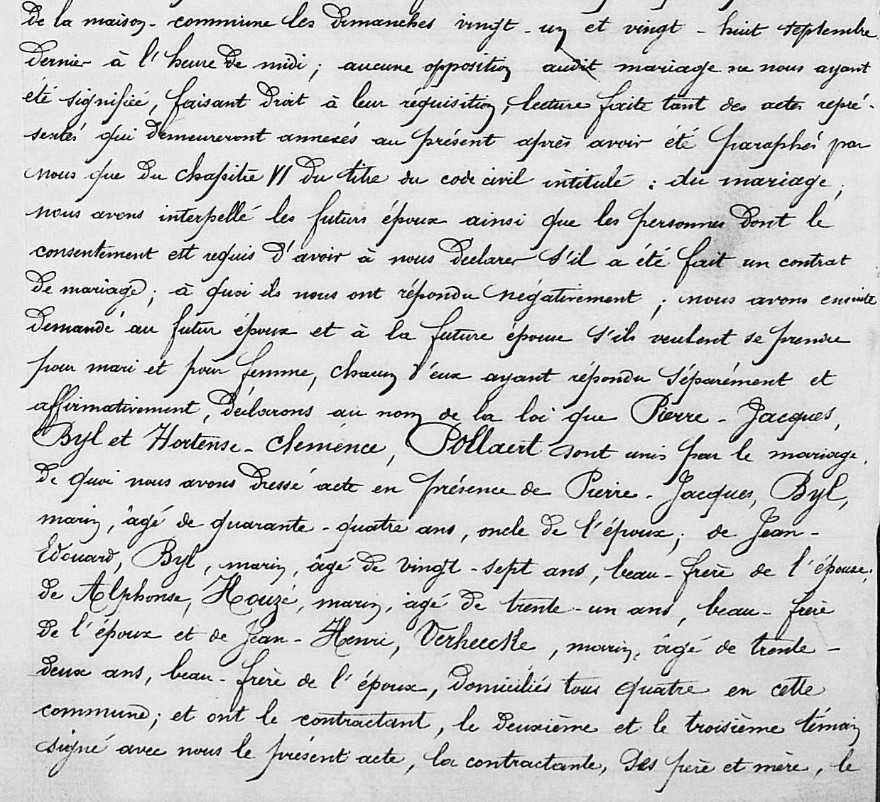 de la maison-commune les dimanches vingt-un et vingt-huit septembre
dernier à l'heure de midi ; aucune opposition audit mariage ne nous ayant
été signifiée, faisant droit à leur réquisition, lecture faite tant des actes repré-
sentés qui demeureront annexés au présent après avoir été paraphés par
nous que du chapitre VI du titre du code civil intitulé : du mariage,
nous avons interpellé les futurs époux ainsi que les personnes dont le
consentement est requis d'avoir à nous déclarer s'il a été fait un contrat
de mariage ; à quoi ils nous ont répondu négativement ; nous avons ensuite
demandé au futur époux et à la future épouse s'ils veulent se prendre
pour mari et pour femme, chacun d'eux ayant répondu séparément et
affirmativement, déclarons au nom de la loi que Pierre-Jacques,
Byl et Hortense-Clémence, Pollaert sont unis par le mariage.
de quoi nous avons dressé acte en présence de Pierre-Jacques, Byl,
marin, âgé de quarante-quatre ans, oncle de l'époux ; de Jean-
Edouard, Byl, marin, âgé de vingt-sept ans, beau-frère de l'épouse,
de Alphonse, Houzé, marin, âgé de trente-un ans, beau-frère
de l'époux et de Jean-Henri, Verheecke, marin, âgé de trente-
deux ans, beau-frère de l'époux, domiciliés tous quatre en cette
commune ; et ont le contractant, le deuxième et le troisième témoin
signé avec nous le présent acte, la contractante, ses père et mère, le